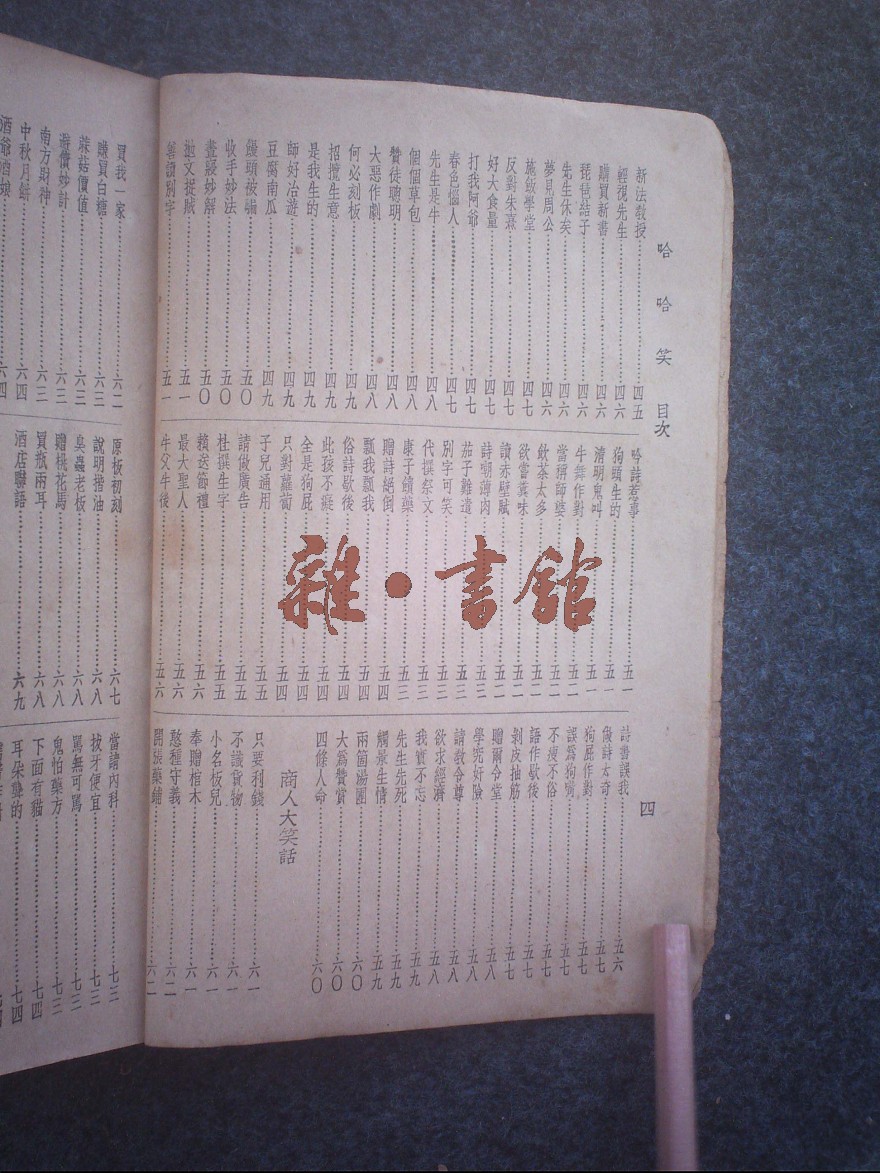 哈哈笑 目次
四
新法教授 四五
輕視先生 四六
購買新書 四六
琵琶結子 四六
先生休矣 四六
夢見周公 四六
施教學堂 四七
反對朱熹 四七
好大食量 四七
打我阿爺 四七
春色惱人 四七
先生是牛 四八
個個草包 四八
贊徒聰明 四八
大惡作劇 四八
何必刻板 四九
招攬生意 四九
是我生的 四九
師好冶遊 四九
豆腐南瓜 四九
饅頭被騙 五〇
收手妙法 五〇
晝寢妙解 五〇
拋文捉賊 五一
善讀別字 五一
吟詩惹事 五一
狗頭生的 五一
清明鬼叫 五一
牛舞作對 五二
當稱師婆 五二
飲茶太多 五二
欲嘗糞味 五二
讀赤壁賦 五二
詩嘲薄肉 五三
茄子難遣 五三
別字可笑 五三
代撰祭文 五三
康子饋藥 五三
贈詩絕倒 五四
瓢我瓢我 五四
俗詩歇後 五四
此孩不癡 五四
全是狗屁 五四
只對蘿蔔 五四
子兒通用 五五
請做廣告 五五
杜撰生字 五五
賴送節禮 五六
最大聖人 五六
牛父牛後 五六
詩書誤我 五六
儗詩太奇 五七
狗屁作對 五七
誤爲狗 五七
不瘦不俗 五七
語作歇後 五七
剝皮抽筋 五七
贈爾令堂 五八
學究好險 五八
請教令尊 五八
欲求經濟 五八
我實不忘 五九
先生先死 五九
觸景生情 五九
兩箇湯團 六〇
大爲贊賞 六〇
四條人命 六〇
商人大笑話
只要利錢 六一
不識貨物 六一
小名板兒 六一
奉贈棺木 六一
憨種守義 六二
開張藥鋪 六二
買我一家 六二
賺買白糖 六三
蔴菇價值 六三
遊價妙計 六三
南方財神 六三
中秋月餅 六四
酒爺酒娘 六四
原板初刻 六七
說明揩油 六八
臭蟲老板 六八
贈桃花馬 六八
買瓶兩耳 六八
酒店聯語 六九
當請內科 七三
拔牙便宜 七三
罵無可罵 七三
鬼怕藥方 七三
下面有貓 七四
耳朵聾的 七四
雜·書館